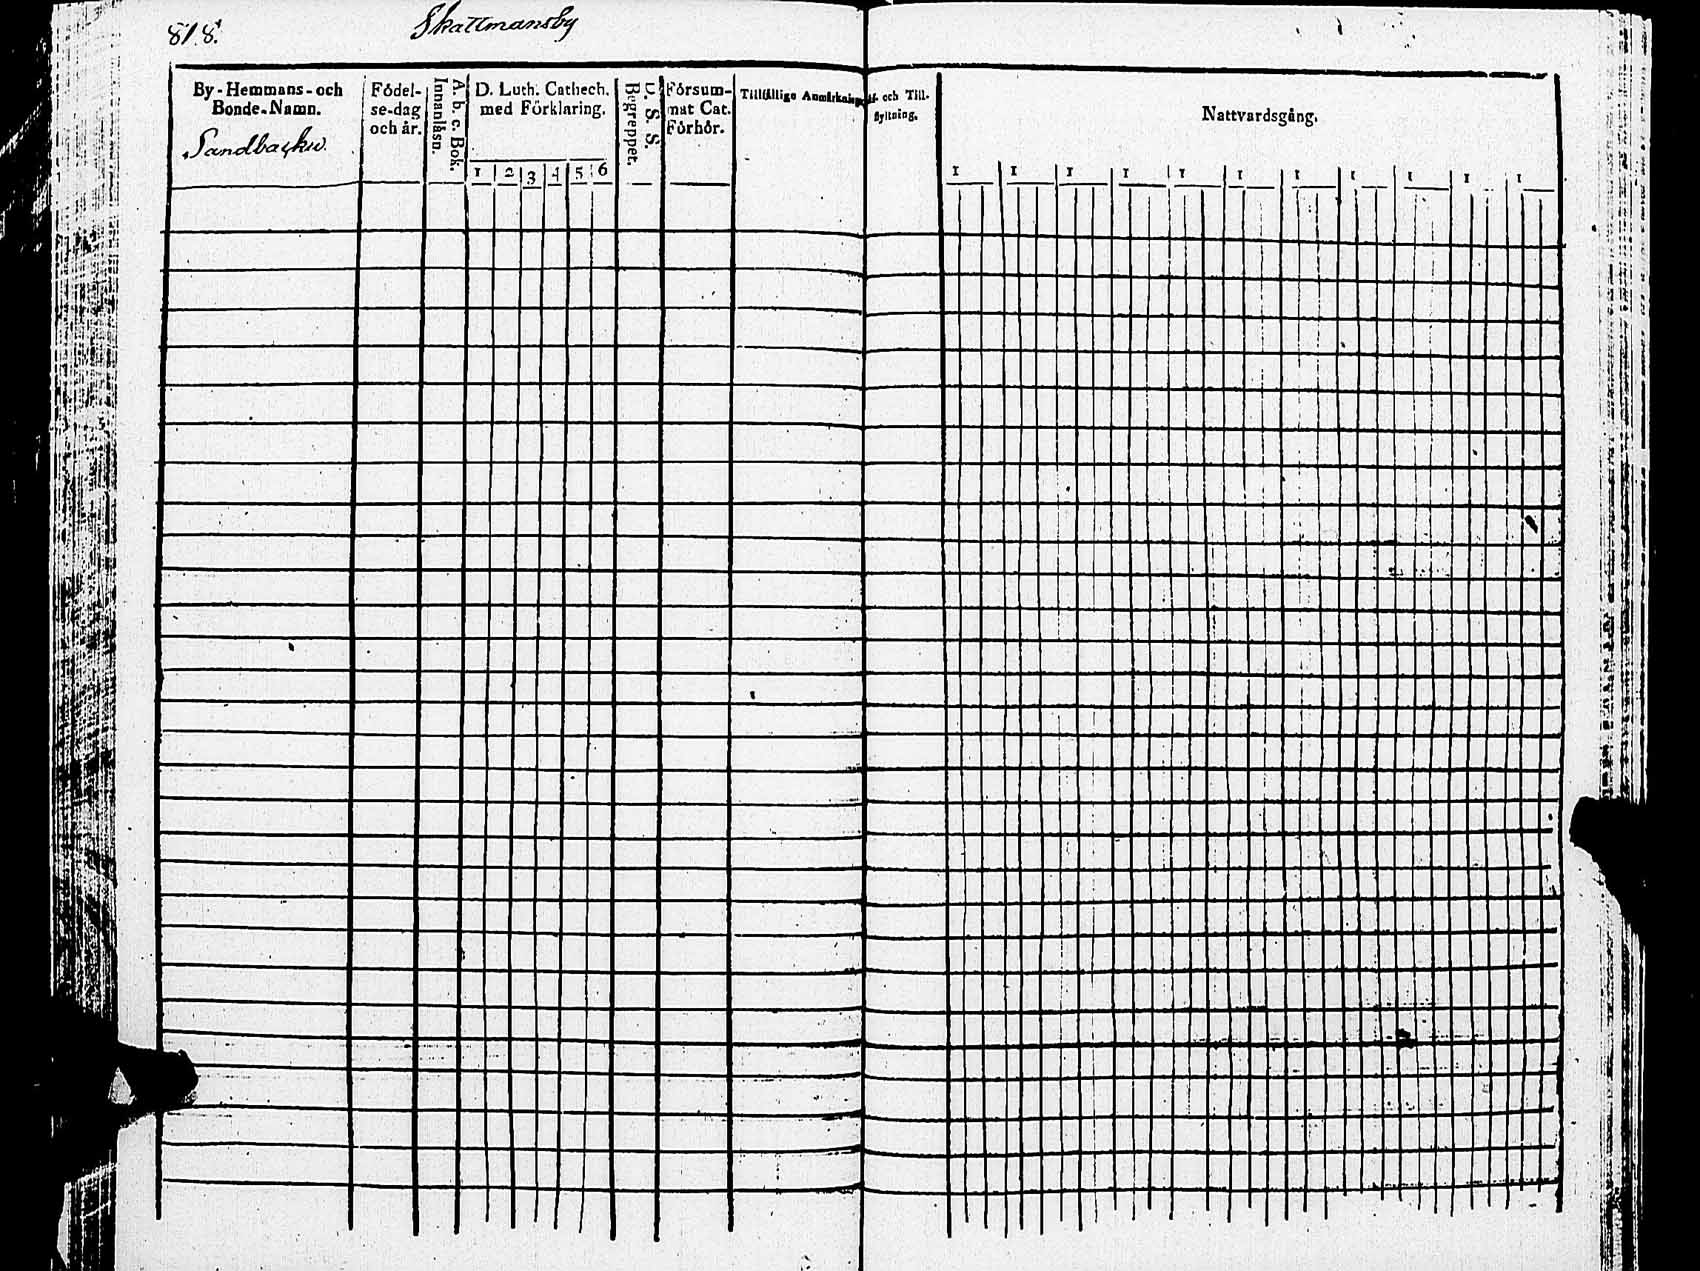 818.
Skattmansby
By-Hemmans-och
Bonde-Namn.
Sandbacka
Födel-
se-dag
och år.
A. b. c. Bok.
Innanläsn.
D. Luth. Cathech.
med Förklaring.
1 2 3 4 5 6
D. S. S.
Begreppet.
Försum-
mat Cat.
Förhör.
Tillfällige Anmärkning
af- och Till-
flyttning.
Nattvardsgång.
1 1 1 1 1 1 1 1 1 1 1